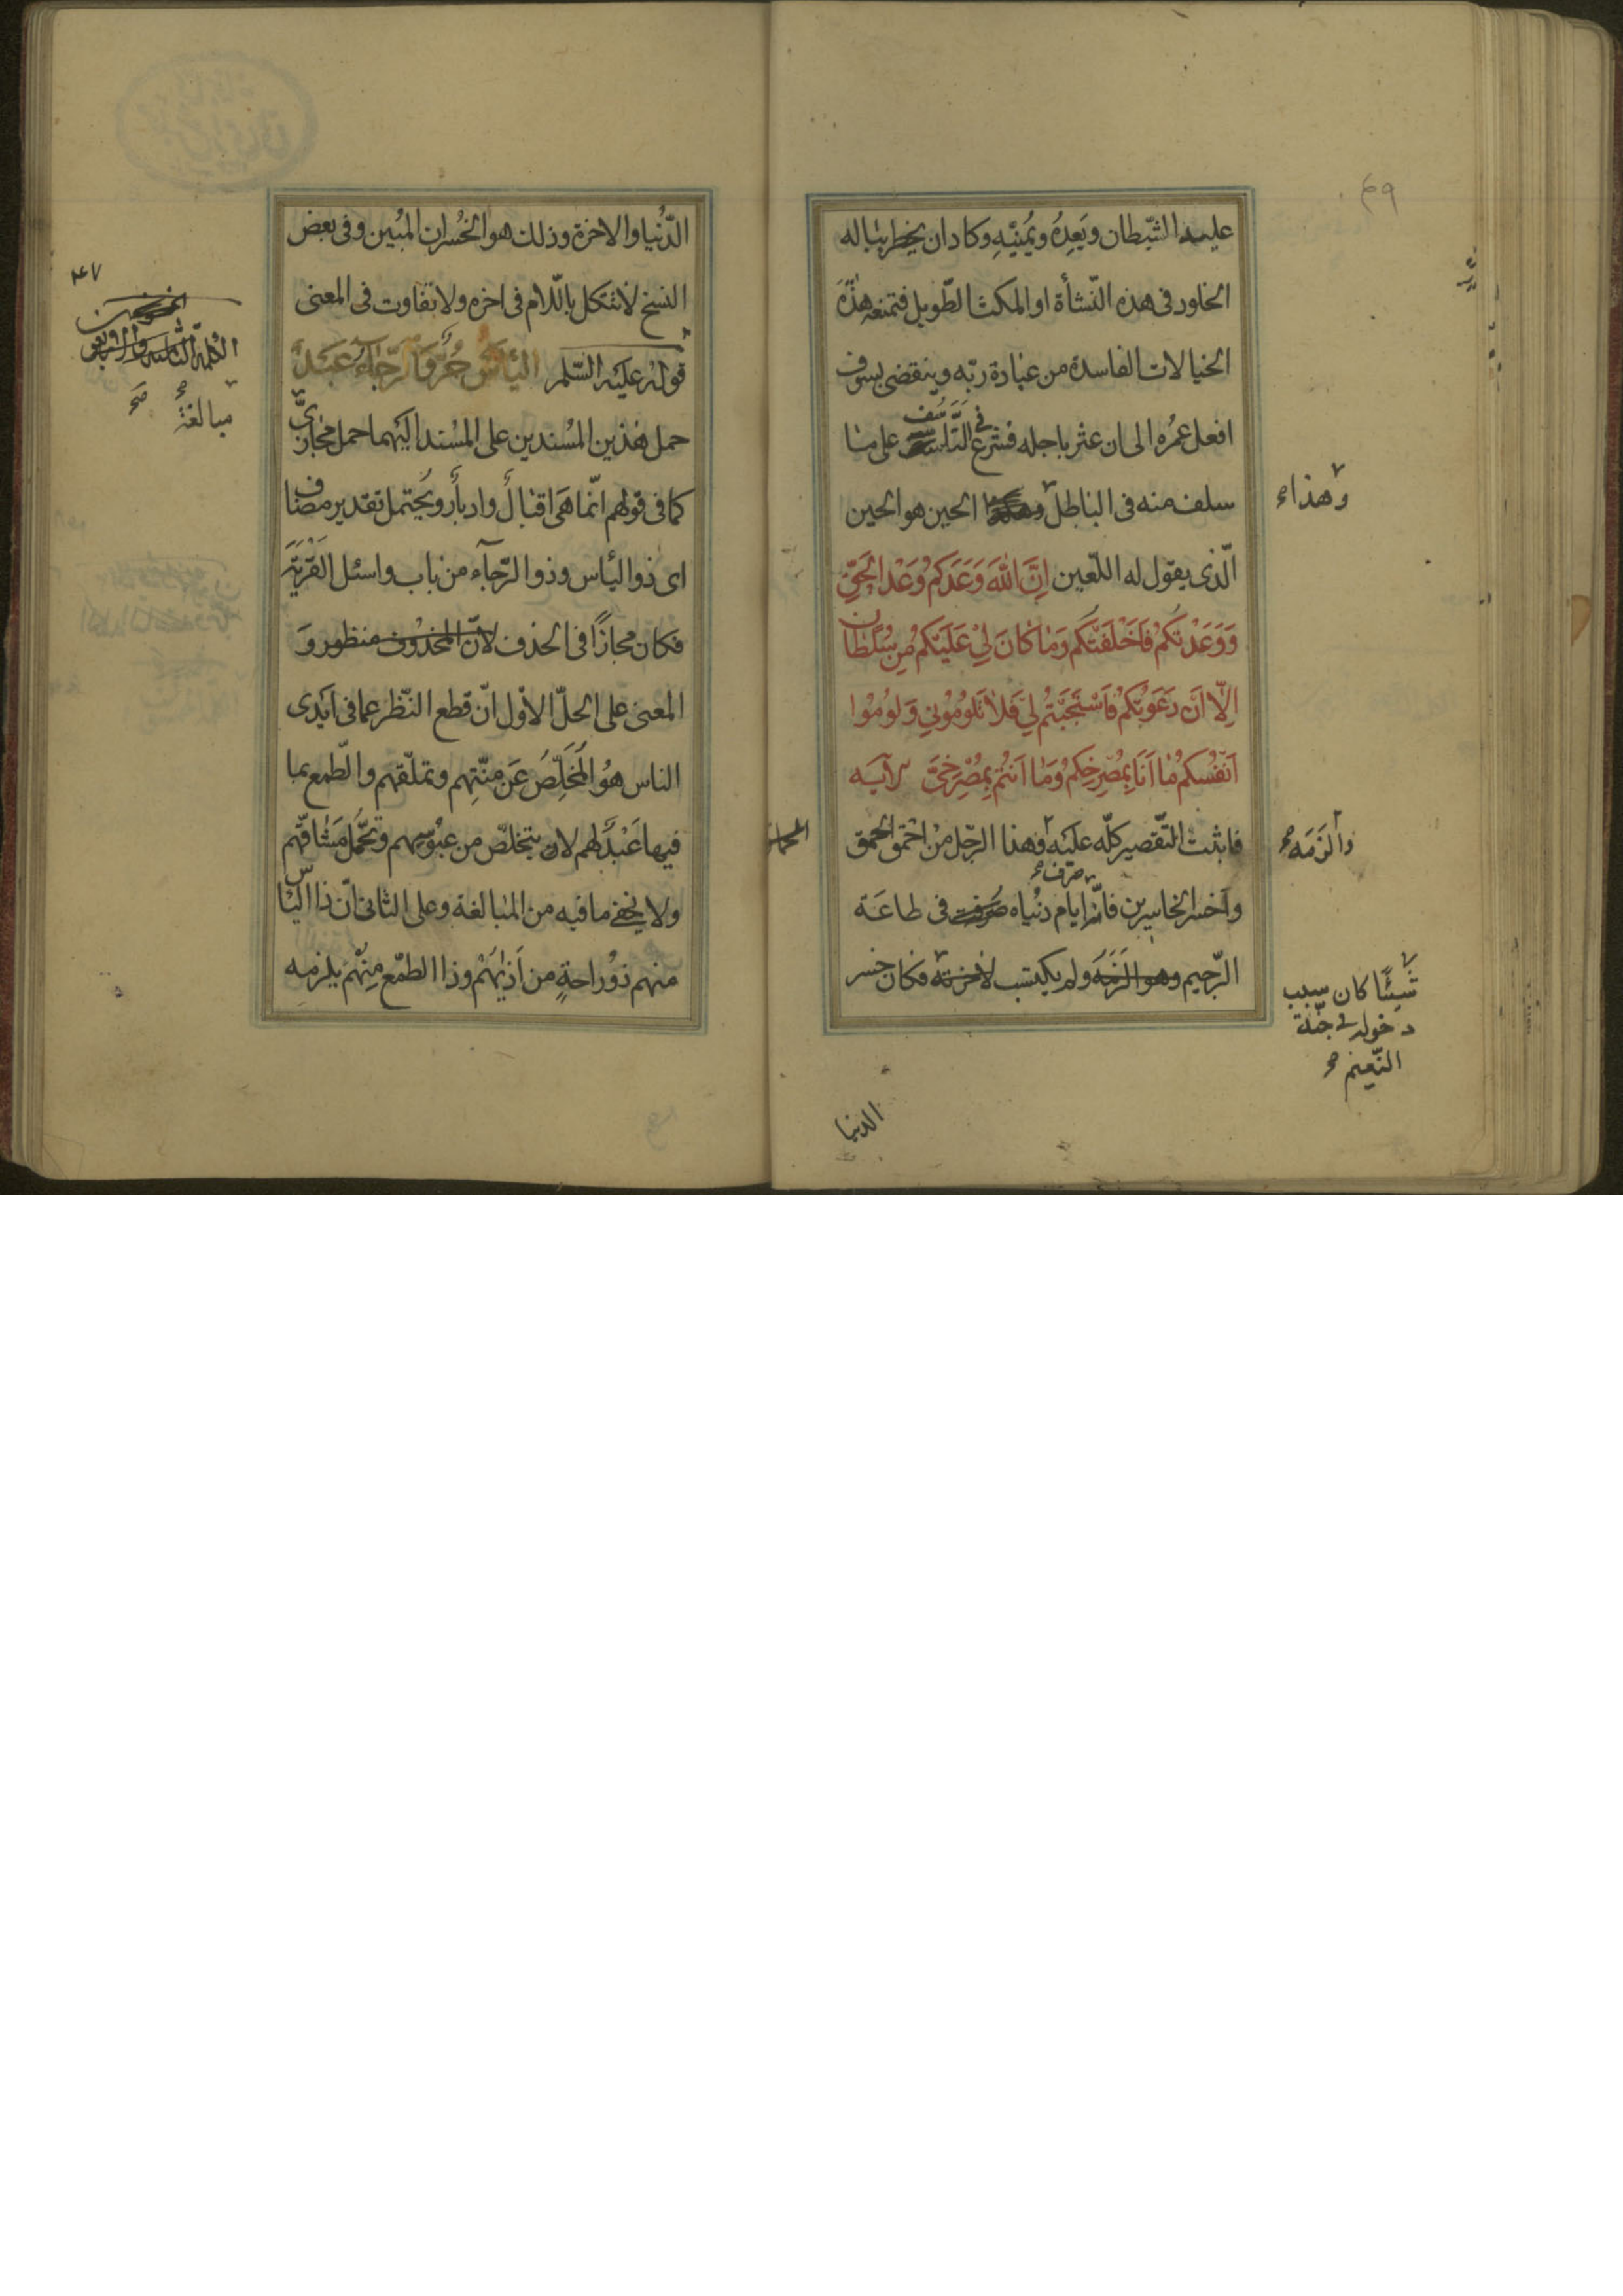 عليه الشّيطان ويَعِدُهُ ويُمَنّيْهِ وكاد ان يخطر بباله
الخلود فى هذه النّشأة او المكث الطّويل فتمنعه هذه
الخيالات الفاسدة من عبادة ربّه وينقضى بسوف
افعل عمُره الى ان عثر باجله فشرع فى التّأسّف على ما
سلف منه فى الباطل الحين هو الحين
وهذا
الّذى يقول له اللّعين اِنَّ اللّٰهَ وَعَدَكُمْ وَعْدَ الْحَقِّ
وَوَعَدْتُكُمْ فَاَخْلَفْتُكُمْ وَمٰا كٰانَ لِيْ عَلَيْكُمْ مِنْ سُلْطٰانٍ
اِلّٰا اَنْ دَعَوْتُكُمْ فَاسْتَجَبْتُمْ لِي فَلٰا تَلُومُوْنِي وَلُوْمُوْا
اَنْفُسَكُمْ مٰا اَنَا بِمُصْرِخِكُمْ وَمٰا اَنْتُمْ بِمُصْرِخِيَّ الآيه
فاثبت التّقصير كلّه عليه وهذا الرّجل من احمق الحمق
والزَمَه
واخسر الخاسرين فانّ ايام دنياه صرفت فى طاعة
صرف
الرّحيم وهو الزَمَهُ ولم يكتسب لاخرته فكان خسر
شيئًا كان سبب
دخوله فى جنّة
النّعيم
الدنيا
٤٧
الدّنيا والاخرة وذلك هو الخُسران المُبين وفى بعض
النسخ لا تتكل باللّام فى اخره ولا تفاوت فى المعنى
قوله عليه السّلم اليأس حُرٌّ وَالرَّجٰاءُ عَبْدٌ
حمل هٰذين المُسندين على المُسند اليهما حمل مجازىّ
مبالغة
صح
كما فى قولهم انّما هى اقبالٌ وادبارٌ ويُحتمل تقدير مضاف
اى ذو اليأس وذو الرّجآء من باب واسئل القَرْيَةَ
فكان مجازًا فى الحذف لانّ المحذوف منظور وَ
المعنى على الحلّ الاوّل انّ قطع النّظر عما فى ايدى
الناس هُو المُخَلِّصُ عَن منّتِهم وتملّقهم والطّمع بما
فيها عَبْدٌ لهم لان يتخلصّ من عبُوسهم وتحمّل مَشٰاقّهم
ولا يخفى ما فيه من المبالغة وعلى الثانى انّ ذا اليأس
منهم ذُو راحةٍ من اَذيٰهُمْ وذا الطّمع مِنْهُمْ يلزمه